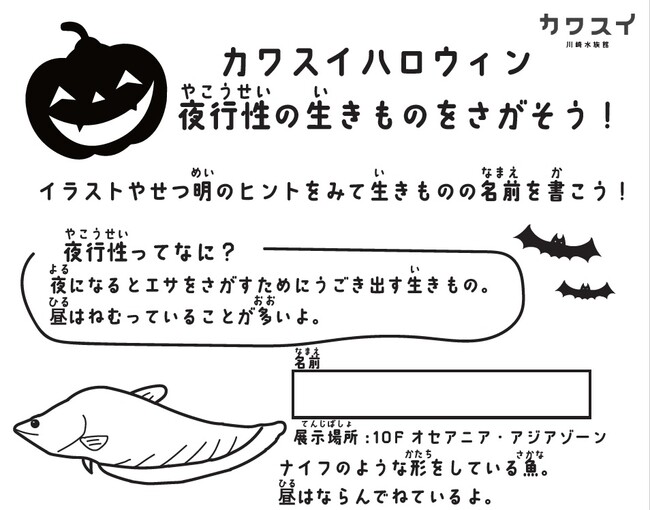 カワスイ
川崎水族館
カワスイハロウィン
やこうせい い
夜行性の生きものをさがそう！
めい い なまえ か
イラストやせつ明のヒントをみて生きものの名前を書こう！
やこうせい
夜行性ってなに？
よる い
夜になるとエサをさがすためにうごき出す生きもの。
ひる おお
昼はねむっていることが多いよ。
なまえ
名前
てんじばしょ
展示場所：10F オセアニア・アジアゾーン
かたち さかな
ナイフのような形をしている魚。
ひる
昼はならんでねているよ。